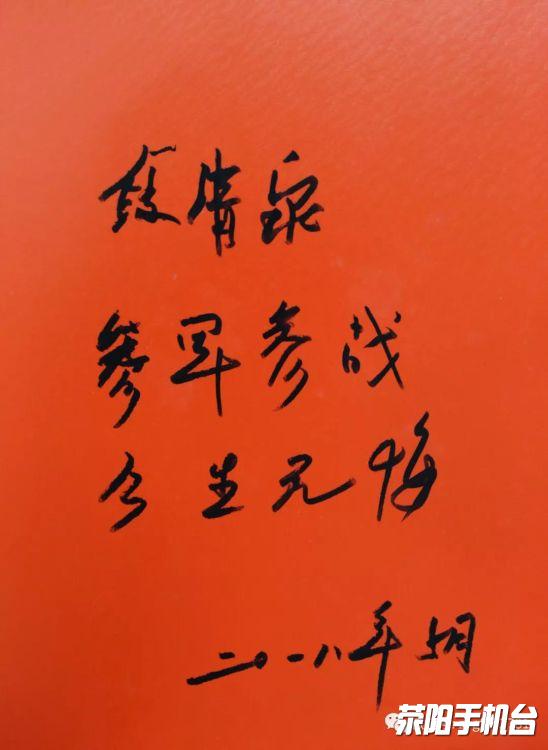 清泉
参军参战
今生无悔
二〇一八年 5月
荥阳手机台